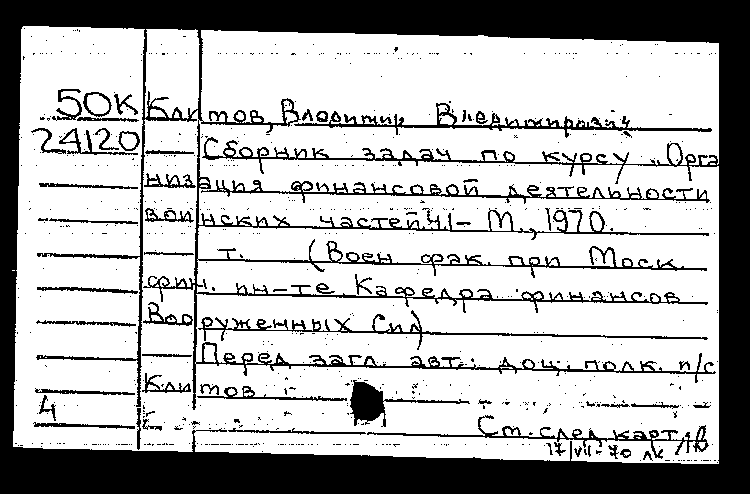 50К Климов, Владимир Владимирович
24120 Сборник задач по курсу „Орга
низация финансовой деятельности
воинских частей". - М., 1970.
т. (Воен фак. при Моск.
фин. ин-те Кафедра финансов
Вооруженных Сил)
Перед загл. авт.: доц. полк. и/с
Климов
4
См. след карт
17/VII-70 лк